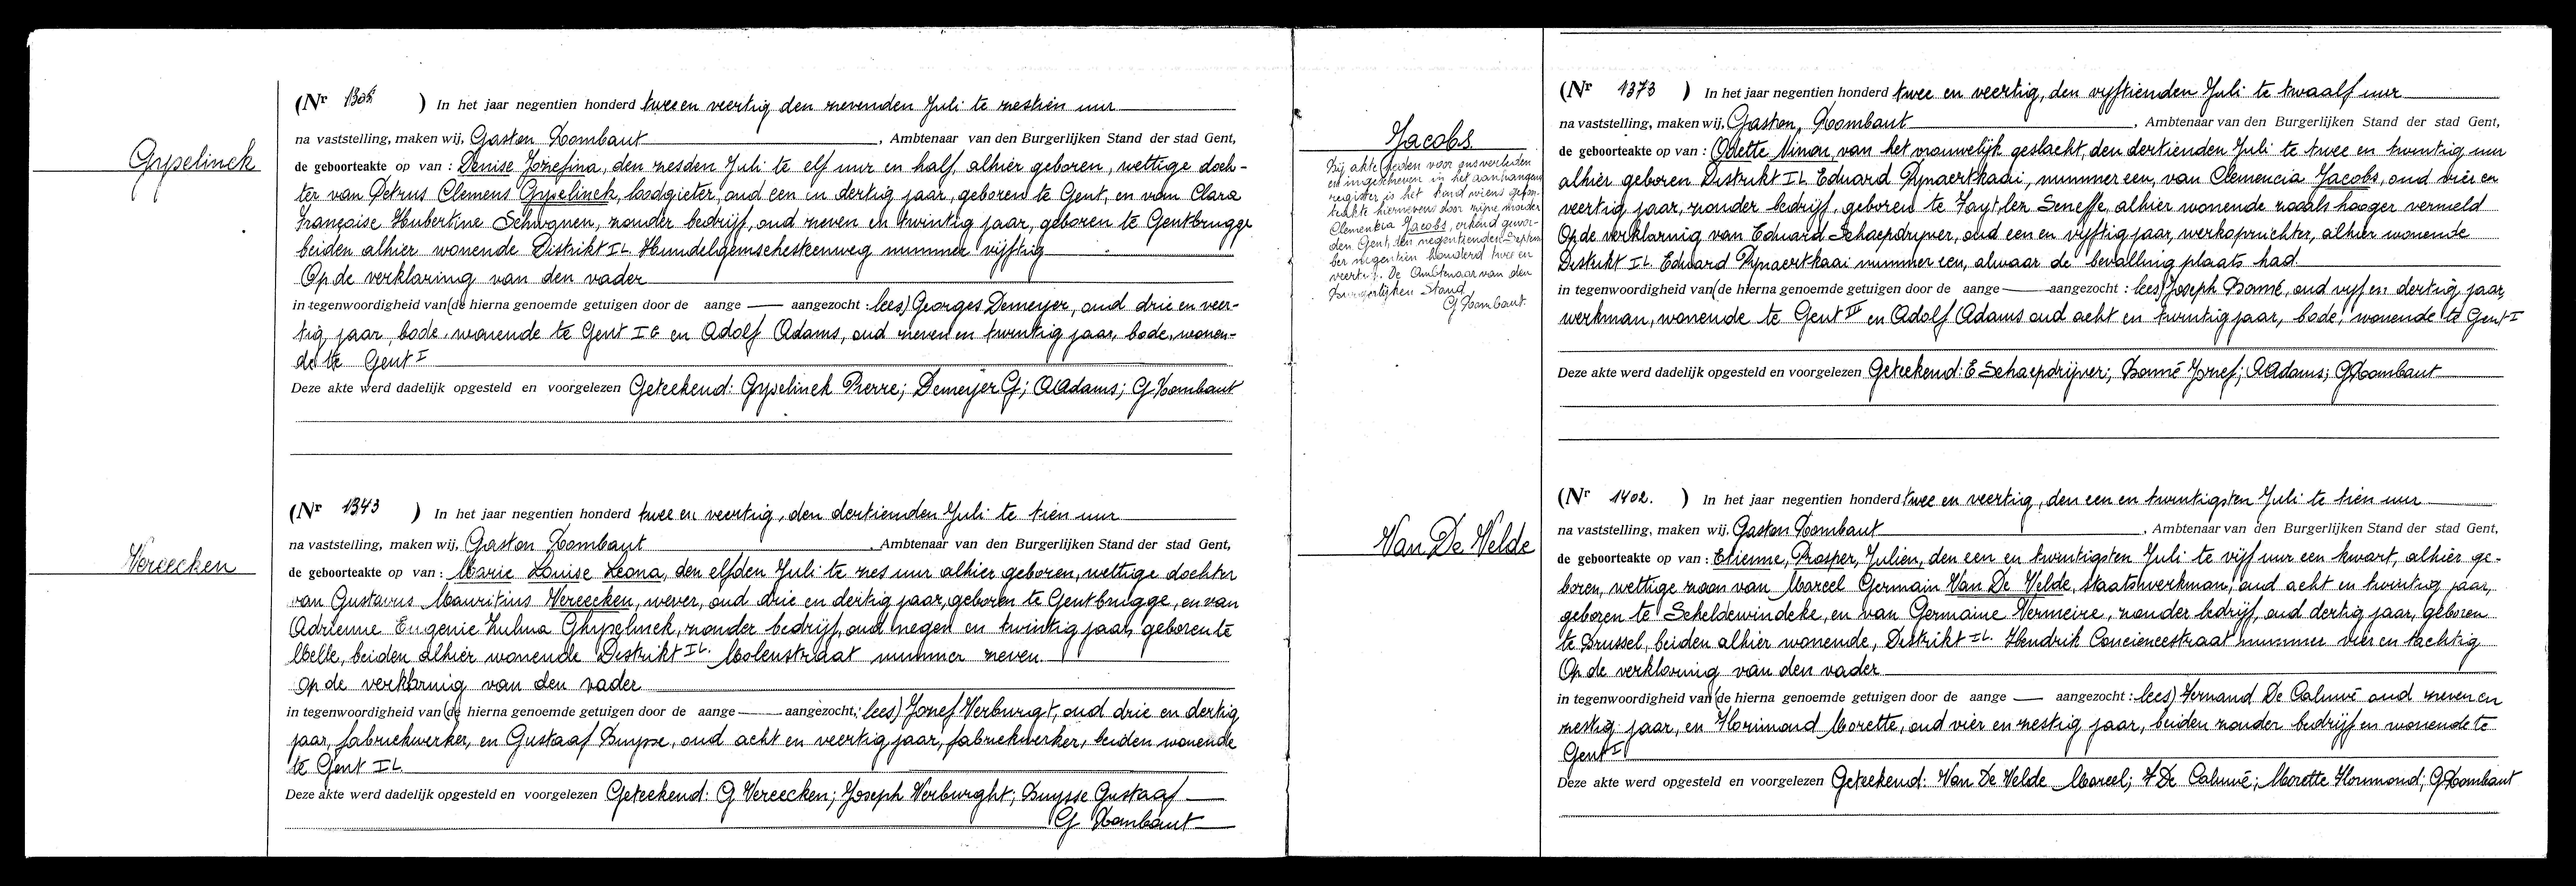 Gyselinck
(Nr 1305 ) In het jaar negentien honderd twee en veertig den zevenden Juli te zestien uur
na vaststelling, maken wij, Gaston Rombaut, Ambtenaar van den Burgerlijken Stand der stad Gent,
de geboorteakte op van : Denise Jozefina, den zesden Juli te elf uur en half, alhier geboren, wettige doch-
ter van Petrus Clemens Gyselinck, loodgieter, oud een en dertig jaar, geboren te Gent, en van Clara
Françoise Hubertine Schwgnen, zonder bedrijf, oud zeven en twintig jaar, geboren te Gentbrugge
beiden alhier wonende Distrikt IL. Hundelgemschesteenweg nummer vijftig
Op de verklaring van den vader
in tegenwoordigheid van (de hierna genoemde getuigen door de aange — aangezocht : lees) Georges Demeyer, oud drie en veer-
tig jaar, bode, wonende te Gent IG en Adolf Adams, oud zeven en twintig jaar, bode, wonen-
de te Gent I
Deze akte werd dadelijk opgesteld en voorgelezen Geteekend: Gyselinck Pierre; Demeyer G; A Adams; G Rombaut
Vereecken
(Nr 1343 ) In het jaar negentien honderd twee en veertig, den dertienden Juli te tien uur
na vaststelling, maken wij, Gaston Rombaut, Ambtenaar van den Burgerlijken Stand der stad Gent,
de geboorteakte op van : Marie Louise Leona, den elfden Juli te zes uur alhier geboren, wettige dochter
van Gustavus Mauritius Vereecken, wever, oud drie en dertig jaar, geboren te Gentbrugge, en van
Adrienne Eugenie Zulma Ghyselinck, zonder bedrijf, oud negen en twintig jaar, geboren te
Melle, beiden alhier wonende Distrikt IL. Molenstraat nummer zeven.
Op de verklarnig van den vader
in tegenwoordigheid van (de hierna genoemde getuigen door de aange — aangezocht : lees) Jozef Verburgt, oud drie en dertig
jaar, fabriekwerker, en Gustaaf Buysse, oud acht en veertig jaar, fabriekwerker, beiden wonende
te Gent IL.
Deze akte werd dadelijk opgesteld en voorgelezen Geteekend: G Vereecken; Joseph Verburght; Buysse Gustaaf
G Rombaut
Jacobs
Bij akte heden voor ons verleden
en ingeschreven in het aanhangend
register is het kind wiens geboor-
teakte hiernevens door zijne moeder
Clementia Jacobs, erkend gewor-
den Gent, den negentienden Septem
ber negentien honderd twee en
veertig. De Ambtenaar van den
Burgerlijken Stand
G Rombaut
(Nr 1373 ) In het jaar negentien honderd twee en veertig, den vijftienden Juli te twaalf uur
na vaststelling, maken wij, Gaston, Rombaut, Ambtenaar van den Burgerlijken Stand der stad Gent,
de geboorteakte op van : Odette Ninon, van het vrouwelijk geslacht, den dertienden Juli te twee en twintig uur
alhier geboren Distrikt IL Eduard Pynaertkaai, nummer een, van Clemencia Jacobs, oud vier en
veertig jaar, zonder bedrijf, geboren te Fayt lez Seneffe, alhier wonende zooals hooger vermeld
Op de verklarnig van Eduard Schaepdryver, oud een en vijftig jaar, werkopzichter, alhier wonende
Distrikt IL. Eduard Pynaertkaai nummer een, alwaar de bevalling plaats had.
in tegenwoordigheid van (de hierna genoemde getuigen door de aange — aangezocht : lees) Joseph Bomé, oud vijf en dertig jaar,
werkman, wonende te Gent IV en Adolf Adams oud acht en twintig jaar, bode, wonende te Gent I
Deze akte werd dadelijk opgesteld en voorgelezen Geteekend: E Schaepdrijver; Bomé Jozef; A Adams; G Rombaut
Van De Velde
(Nr 1402. ) In het jaar negentien honderd twee en veertig, den een en twintigsten Juli te tien uur
na vaststelling, maken wij. Gaston Rombaut, Ambtenaar van den Burgerlijken Stand der stad Gent,
de geboorteakte op van : Etienne, Prosper, Julien, den een en twintigsten Juli te vijf uur een kwart, alhier ge-
boren, wettige zoon van Marcel Germain Van De Velde, staatswerkman, oud acht en twintig jaar,
geboren te Scheldewindeke, en van Germaine Vermeire, zonder bedrijf, oud dertig jaar, geboren
te Brussel, beiden alhier wonende, Distrikt IL. Hendrik Conciencestraat nummer vier en tachtig
Op de verklarnig van den vader
in tegenwoordigheid van (de hierna genoemde getuigen door de aange — aangezocht : lees) Fernand De Caluwé oud zeven en
zestig jaar, en Florimond Morette, oud vier en zestig jaar, beiden zonder bedrijf en wonende te
Gent I
Deze akte werd opgesteld en voorgelezen Geteekend: Van De Velde Marcel; F De Caluwé; Morette Florimond; G Rombaut